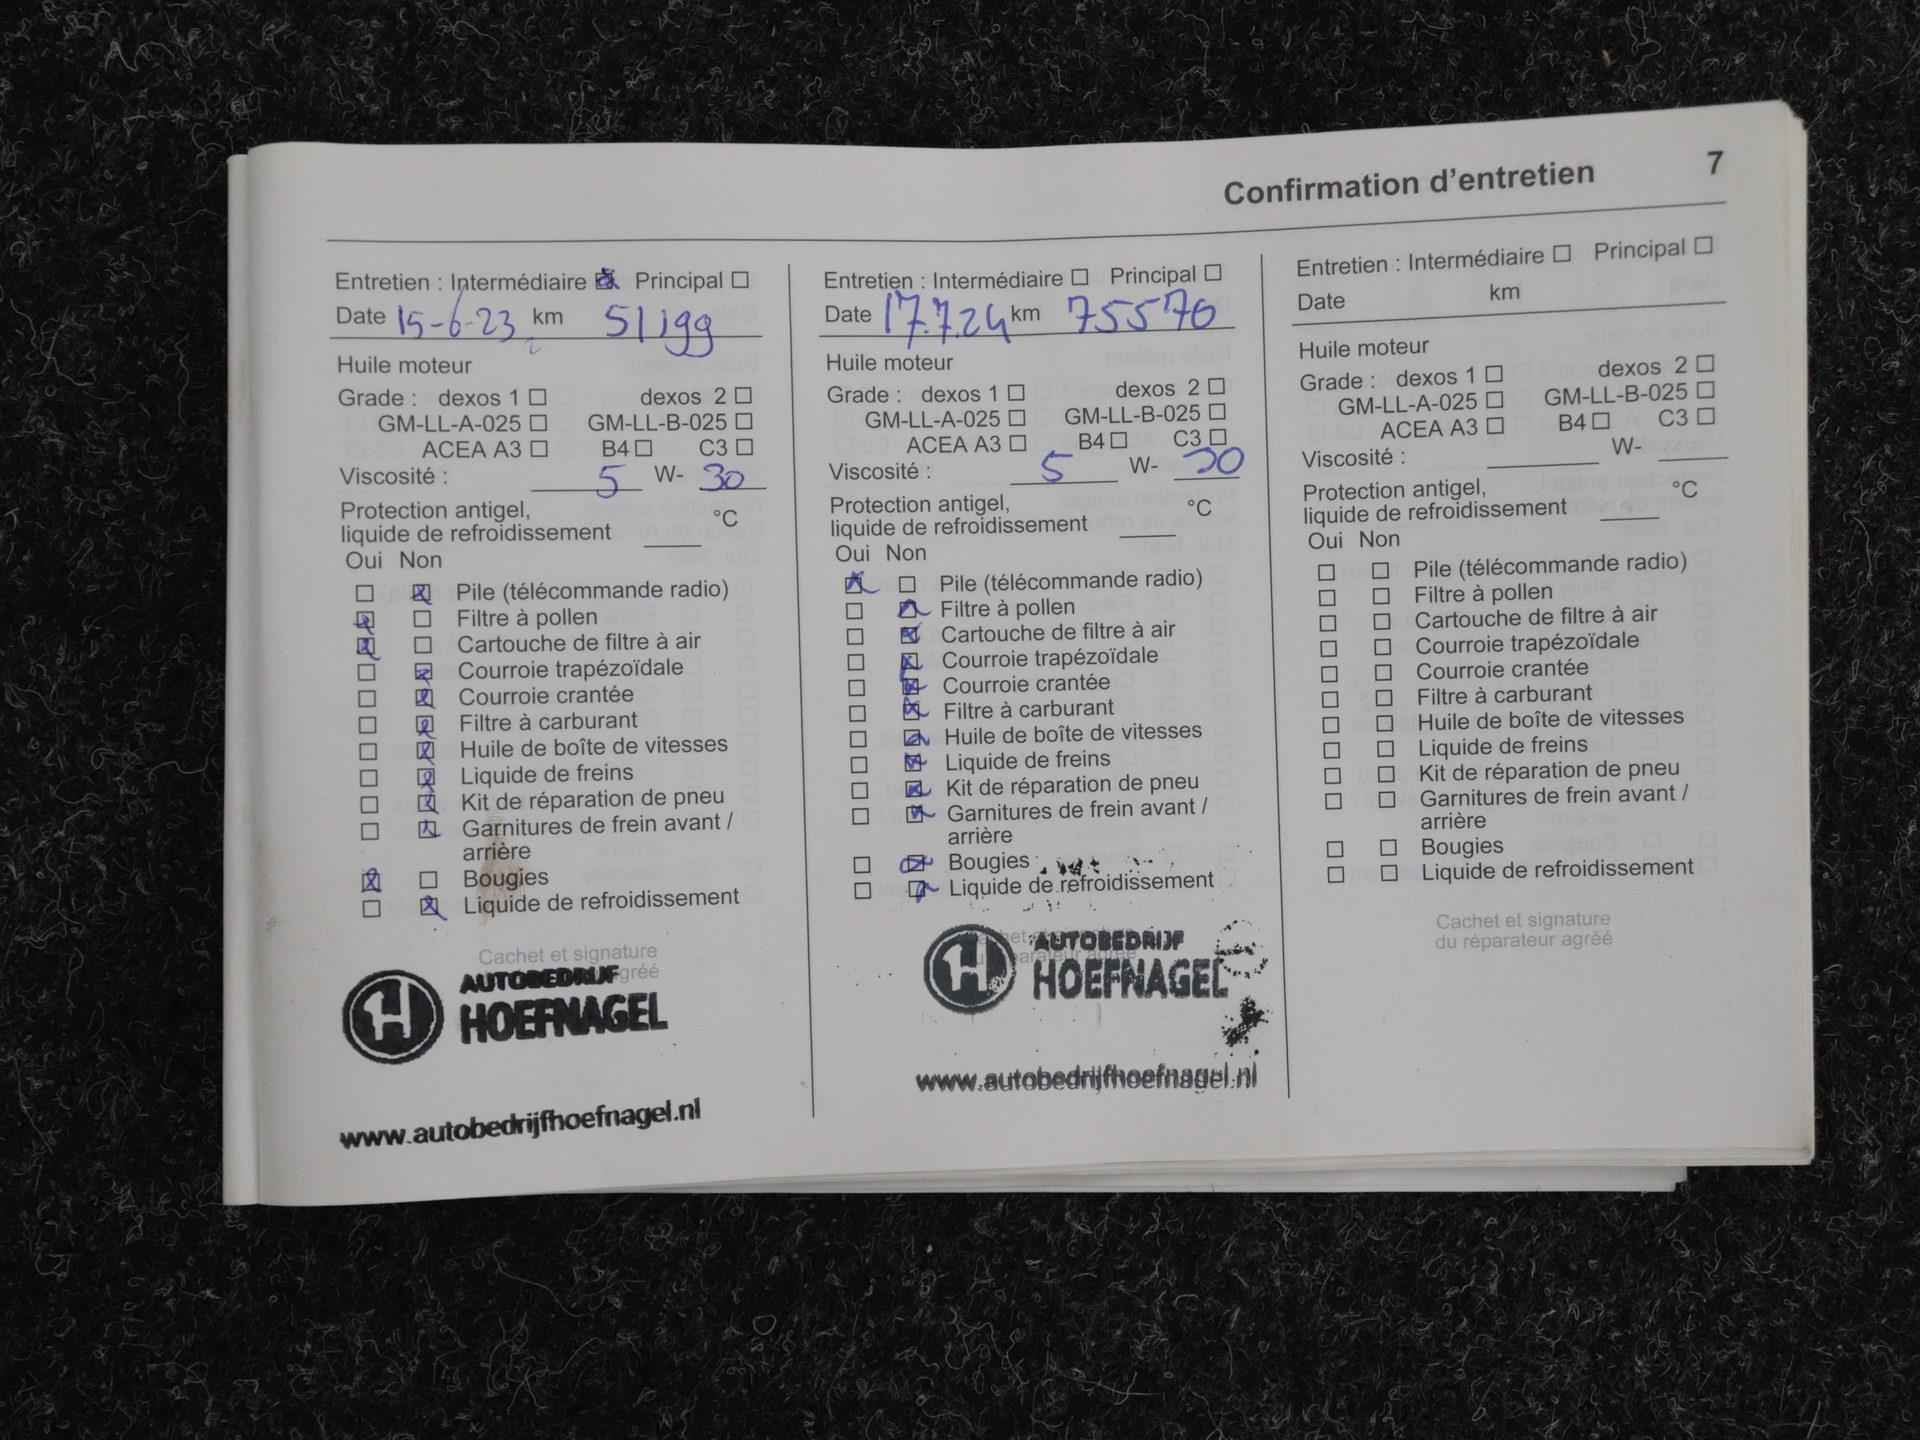 Confirmation d'entretien 7
Entretien : Intermédiaire ☒ Principal ☐
Date 15-6-23 km 51199
Huile moteur
Grade : dexos 1 ☐ dexos 2 ☐
GM-LL-A-025 ☐ GM-LL-B-025 ☐
ACEA A3 ☐ B4 ☐ C3 ☐
Viscosité : 5 W- 30
Protection antigel,
liquide de refroidissement ____ °C
Oui Non
☐ ☒ Pile (télécommande radio)
☒ ☐ Filtre à pollen
☒ ☐ Cartouche de filtre à air
☐ ☒ Courroie trapézoïdale
☐ ☒ Courroie crantée
☐ ☒ Filtre à carburant
☐ ☒ Huile de boîte de vitesses
☐ ☒ Liquide de freins
☐ ☒ Kit de réparation de pneu
☐ ☒ Garnitures de frein avant /
arrière
☒ ☐ Bougies
☐ ☒ Liquide de refroidissement
Cachet et signature
agréé
AUTOBEDRIJF
HOEFNAGEL
www.autobedrijfhoefnagel.nl
Entretien : Intermédiaire ☐ Principal ☐
Date 17.7.24 km 75570
Huile moteur
Grade : dexos 1 ☐ dexos 2 ☐
GM-LL-A-025 ☐ GM-LL-B-025 ☐
ACEA A3 ☐ B4 ☐ C3 ☐
Viscosité : 5 W- 30
Protection antigel,
liquide de refroidissement ____ °C
Oui Non
☒ ☐ Pile (télécommande radio)
☐ ☒ Filtre à pollen
☐ ☒ Cartouche de filtre à air
☐ ☒ Courroie trapézoïdale
☐ ☒ Courroie crantée
☐ ☒ Filtre à carburant
☐ ☒ Huile de boîte de vitesses
☐ ☒ Liquide de freins
☐ ☒ Kit de réparation de pneu
☐ ☒ Garnitures de frein avant /
arrière
☐ ☒ Bougies
☐ ☒ Liquide de refroidissement
AUTOBEDRIJF
HOEFNAGEL
www.autobedrijfhoefnagel.nl
Entretien : Intermédiaire ☐ Principal ☐
Date km
Huile moteur
Grade : dexos 1 ☐ dexos 2 ☐
GM-LL-A-025 ☐ GM-LL-B-025 ☐
ACEA A3 ☐ B4 ☐ C3 ☐
Viscosité : ____ W- ____
Protection antigel,
liquide de refroidissement ____ °C
Oui Non
☐ ☐ Pile (télécommande radio)
☐ ☐ Filtre à pollen
☐ ☐ Cartouche de filtre à air
☐ ☐ Courroie trapézoïdale
☐ ☐ Courroie crantée
☐ ☐ Filtre à carburant
☐ ☐ Huile de boîte de vitesses
☐ ☐ Liquide de freins
☐ ☐ Kit de réparation de pneu
☐ ☐ Garnitures de frein avant /
arrière
☐ ☐ Bougies
☐ ☐ Liquide de refroidissement
Cachet et signature
du réparateur agréé